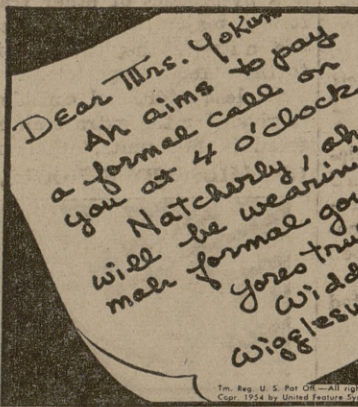 Dear Mrs. Yokum
Ah aims to pay
a formal call on
you at 4 o'clock
Natcherly, ah
will be wearin
mah formal
Yores
Widd
Wigglesw
Tm. Reg. U. S. Pat Off.—All righ
Copr. 1954 by United Feature Sy